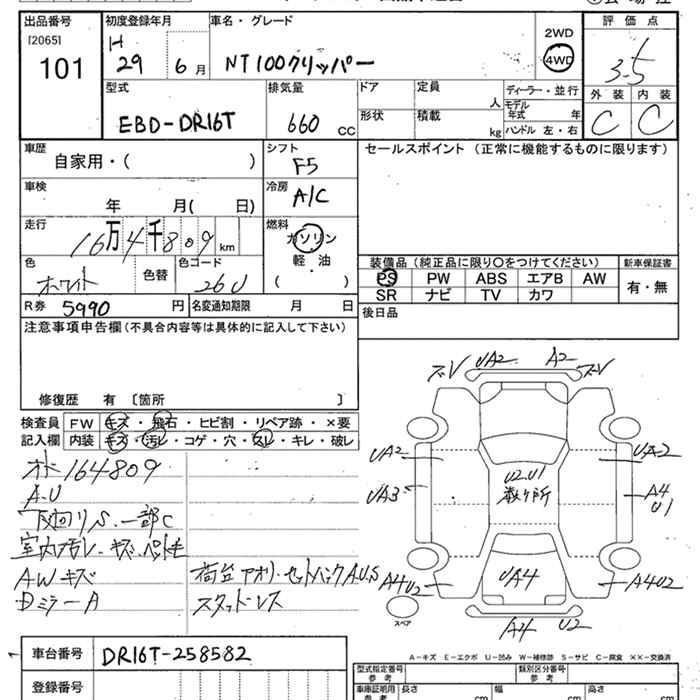 出品番号 初度登録年月 車名・グレード 2WD 評価点
[2065] H
101 29 6月 NT100クリッパー 4WD 3.5
型式 排気量 ドア 定員 人 ディーラー・並行 外装 内装
EBD-DR16T 660 CC 形状 積載 kg モデル年式 年 C C
ハンドル 左・右
車歴 シフト セールスポイント (正常に機能するものに限ります)
自家用・( ) F5
車検 冷房
年 月( 日) A/C
走行 燃料
16万4千809km ガソリン
軽・油
( )
色 色替 色コード 装備品 (純正品に限り○をつけてください) 新車保証書
ホワイト 26U PS PW ABS エアB AW 有・無
SR ナビ TV カワ
R券 5990 円 名変通知期限 月 日 後日品
注意事項申告欄 (不具合内容等は具体的に記入して下さい)
修復歴 有 〔箇所 〕
検査員 FW キズ・飛石・ヒビ割・リペア跡・×要
記入欄 内装 キズ・汚レ・コゲ・穴・スレ・キレ・破レ
オド164809
A.U
下回りS.一部C
室内汚レ.キズ.ペット毛
AWキズ 荷台アオリ.セットバックA.U.S
Dミラー A スタッドレス
ズV UA2 A2 ズV
UA2 UA2
U2.U1
数ヶ所
UA3 A4
U1
A4U2 UA4 A4U2
スペア
A4 U2
A-キズ E-エクボ U-凹み W-補修跡 S-サビ C-腐食 ××-交換済
車台番号 DR16T-258582 型式指定番号 参考 類別区分番号 参考
登録番号 車庫証明用 参考 長さ cm 幅 cm 高さ cm